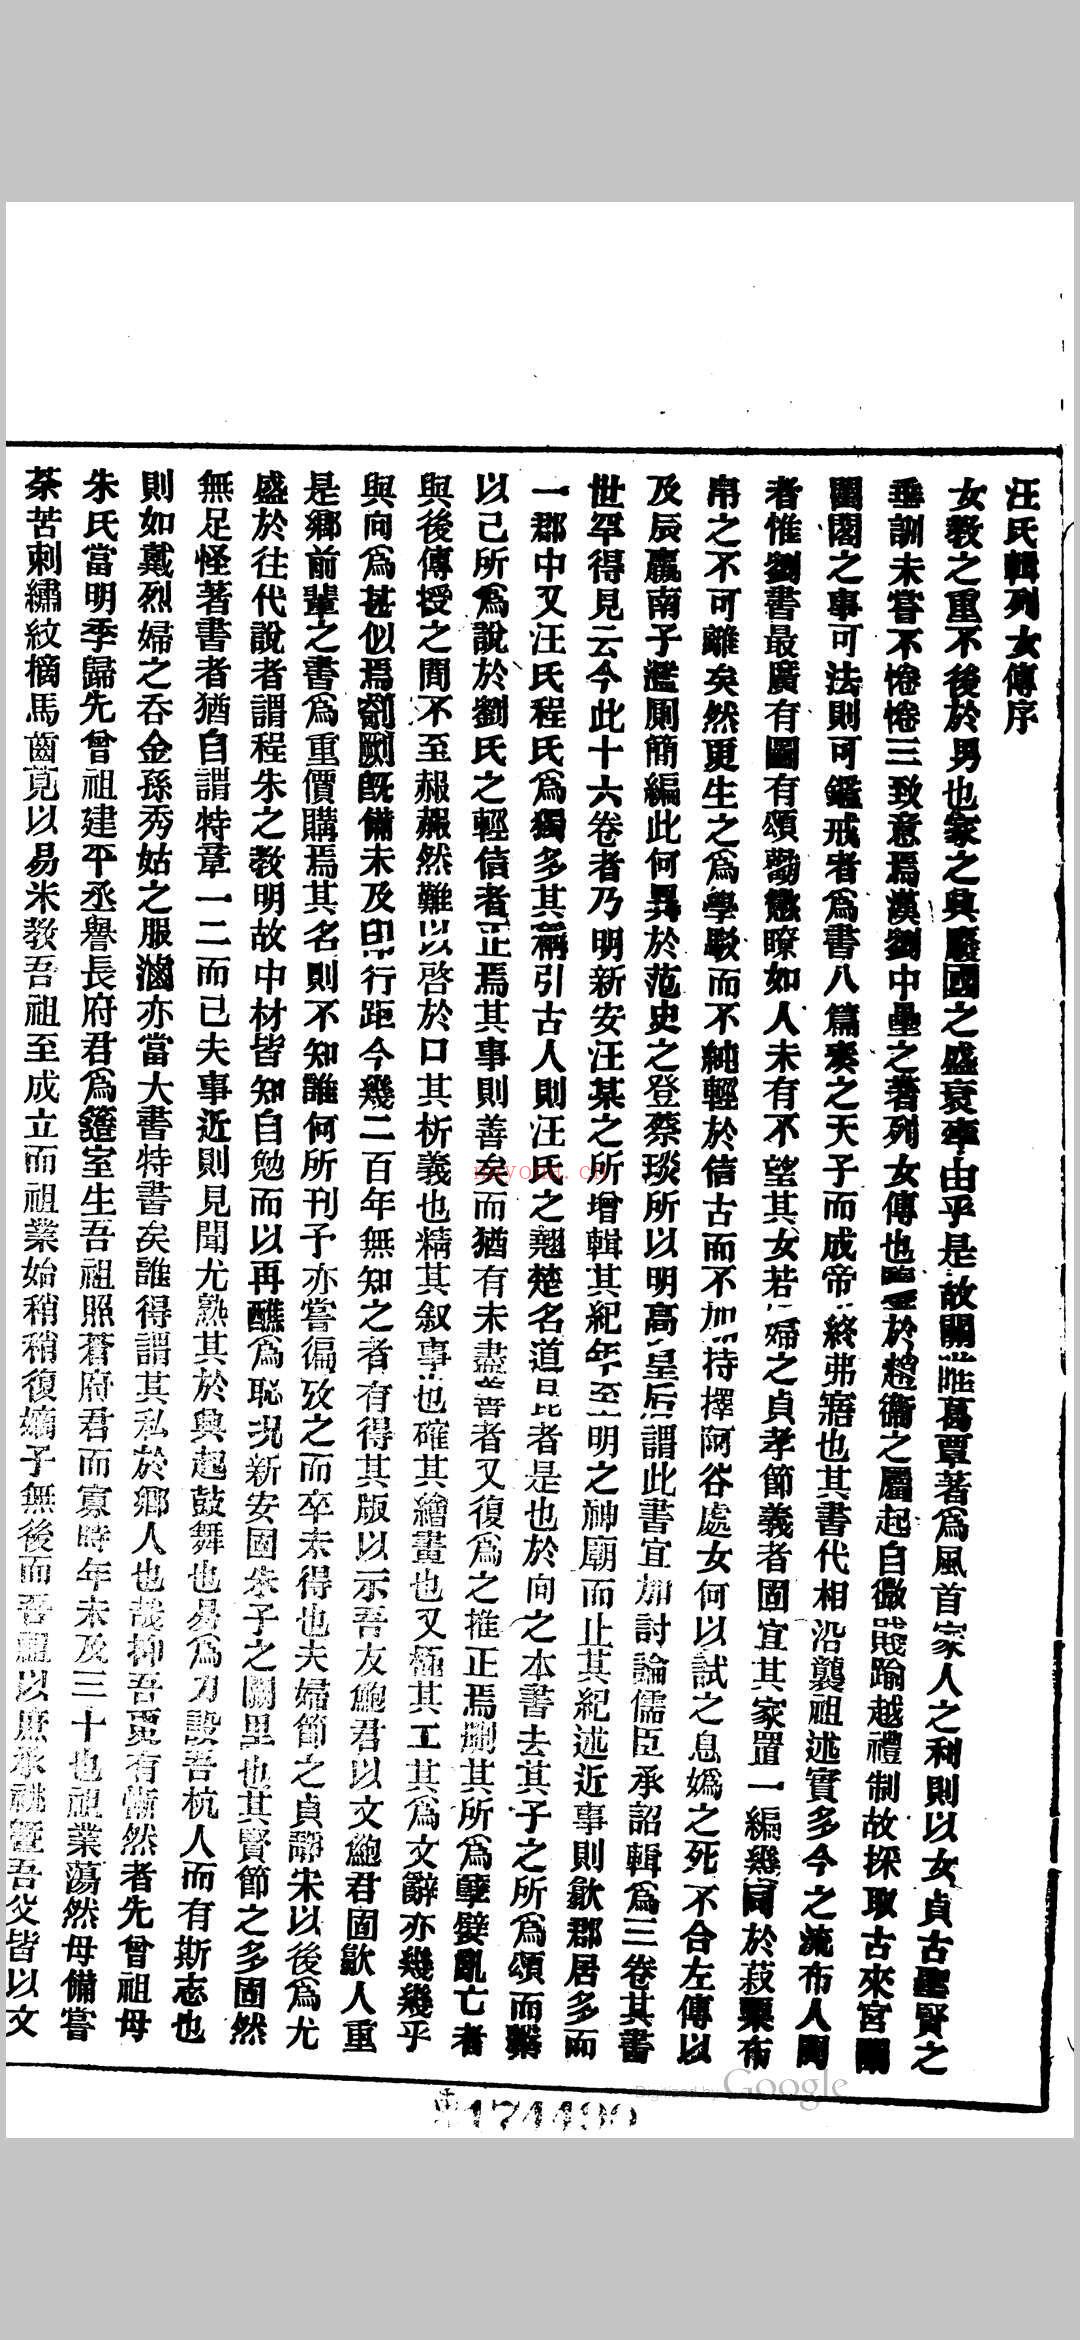 汪氏輯列女傳序
女教之重不後於男也家之興廢國之盛衰率由乎是故關雎葛覃著為風首家人之利則以女貞古聖賢之
垂訓未嘗不惓惓三致意焉漢劉中壘之著列女傳也 於趙衞之屬起自微賤踰越禮制故採取古來宮闈
閨閤之事可法則可鑑戒者為書八篇奏之天子而成帝終弗寤也其書代相沿襲祖述實多今之流布人間
者惟劉書最廣有圖有頌勸懲瞭如人未有不望其女若婦之貞孝節義者固宜其家置一編幾同於菽粟布
帛之不可離矣然更生之為學駁而不純輕於信古而不加持擇阿谷處女何以試之息媯之死不合左傳以
及辰嬴南子濫厠簡編此何異於范史之登蔡琰所以明高皇后謂此書宜加討論儒臣承詔輯為三卷其書
世罕得見云今此十六卷者乃明新安汪某之所增輯其紀年至 明之神廟而止其紀述近事則歙郡居多而
一郡中又汪氏程氏為獨多其稱引古人則汪氏之翹楚名道昆者是也於向之本書去其子之所為頌而繫
以己所為說於劉氏之輕信者正焉其事則善矣而猶有未盡善者又復為之推正焉刪其所為孽嬖亂亡者
與後傳授之間不至赧赧然難以啓於口其析義也精其叙事也確其繪畫也又極其工其為文辭亦幾幾乎
與向為甚似焉剞劂既備未及印行距今幾二百年無知之者有得其版以示吾友鮑君以文鮑君固歙人重
是鄉前輩之書為重價購焉其名則不知誰何所刊予亦嘗徧攷之而卒未得也夫婦節之貞靜宋以後為尤
盛於往代說者謂程朱之教明故中材皆知自勉而以再醮為恥況新安固朱子之闕里也其賢節之多固然
無足怪著書者猶自謂特章一二而已夫事近則見聞尤熟其於興起鼓舞也易為力設吾杭人而有斯志也
則如戴烈婦之吞金孫秀姑之服滷亦當大書特書矣誰得謂其私於鄉人也哉抑吾更有慚然者先曾祖母
朱氏當明季歸先曾祖建平丞譽長府君為簉室生吾祖照蒼府君而寡時年未及三十也祖業蕩然母備嘗
荼苦刺繡紋摘馬齒莧以易米教吾祖至成立而祖業始稍稍復嫡子無後而吾祖以庶承祧暨吾父皆以文